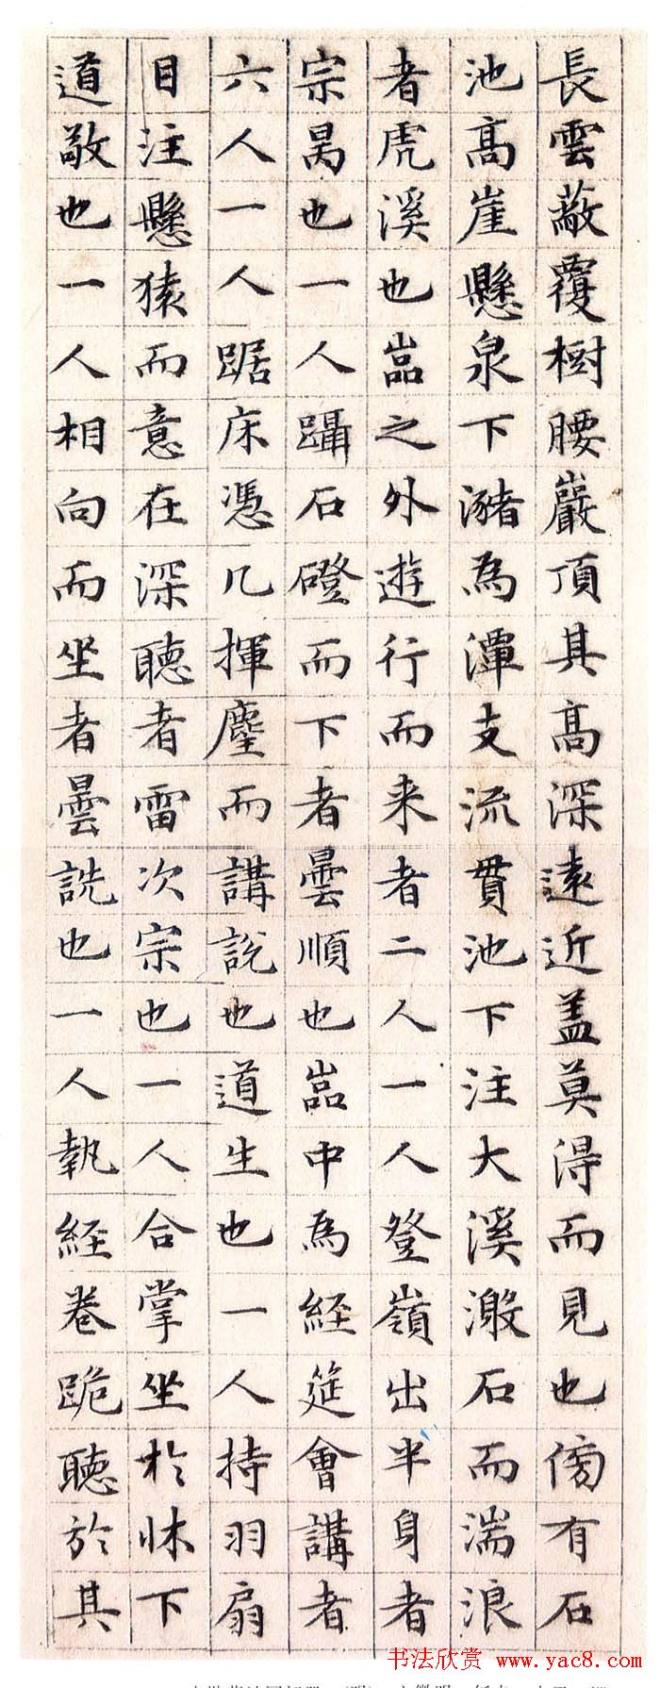 長雲蔽覆樹腰巖頂其高深遠近盖莫得而見也傍有石
池高崖懸泉下瀦為潭支流貫池下注大溪激石而湍浪
者虎溪也嵓之外遊行而来者二人一人登嶺出半身者
宗昺也一人躡石磴而下者曇順也嵓中為經筵會講者
六人一人踞床憑几揮麈而講說也道生也一人持羽扇
目注懸猿而意在深聽者雷次宗也一人合掌坐於床下
道敬也一人相向而坐者曇詵也一人執經卷跪聽於其
书法欣赏 www.yac8.com